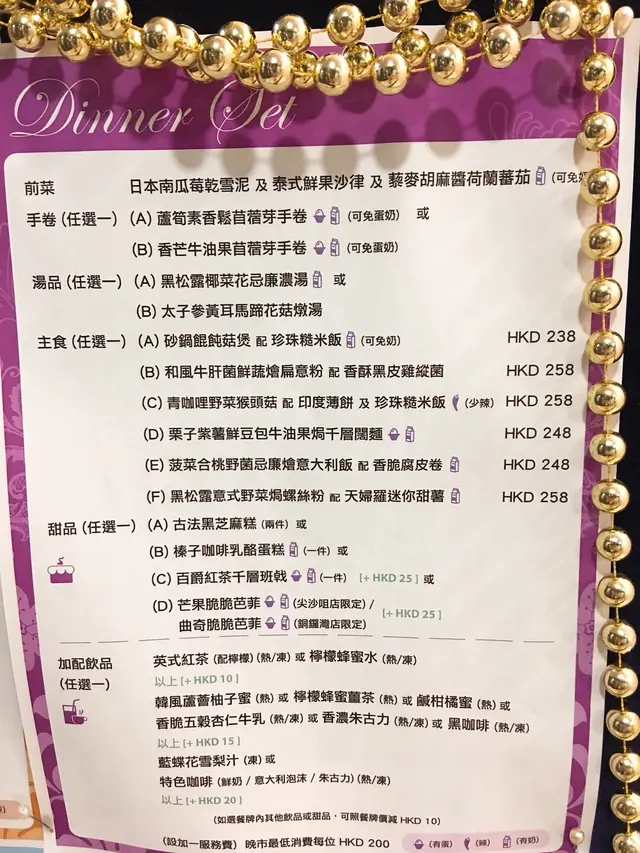 Dinner Set
前菜 日本南瓜莓乾雪泥 及 泰式鮮果沙律 及 藜麥胡麻醬荷蘭蕃茄 (可免奶
手卷 (任選一) (A) 蘆筍素香鬆苜蓿芽手卷 (可免蛋奶) 或
(B) 香芒牛油果苜蓿芽手卷 (可免蛋奶)
湯品 (任選一) (A) 黑松露椰菜花忌廉濃湯 或
(B) 太子參黃耳馬蹄花菇燉湯
主食 (任選一) (A) 砂鍋餛飩菇煲 配 珍珠糙米飯 (可免奶) HKD 238
(B) 和風牛肝菌鮮蔬燴扁意粉 配 香酥黑皮雞縱菌 HKD 258
(C) 青咖哩野菜猴頭菇 配 印度薄餅 及 珍珠糙米飯 (少辣) HKD 258
(D) 栗子紫薯鮮豆包牛油果焗千層闊麵 HKD 248
(E) 菠菜合桃野菌忌廉燴意大利飯 配 香脆腐皮卷 HKD 248
(F) 黑松露意式野菜焗螺絲粉 配 天婦羅迷你甜薯 HKD 258
甜品 (任選一) (A) 古法黑芝麻糕 (兩件) 或
(B) 榛子咖啡乳酪蛋糕 (一件) 或
(C) 百爵紅茶千層班戟 (一件) [+ HKD 25 ] 或
(D) 芒果脆脆芭菲 (尖沙咀店限定) / [+ HKD 25 ]
曲奇脆脆芭菲 (銅鑼灣店限定)
加配飲品 英式紅茶 (配檸檬) (熱/凍) 或 檸檬蜂蜜水 (熱/凍)
(任選一) 以上 [+ HKD 10 ]
韓風蘆薈柚子蜜 (熱) 或 檸檬蜂蜜薑茶 (熱) 或 鹹柑橘蜜 (熱) 或
香脆五穀杏仁牛乳 (熱/凍) 或 香濃朱古力 (熱/凍) 或 黑咖啡 (熱/凍)
以上 [+ HKD 15 ]
藍蝶花雪梨汁 (凍) 或
特色咖啡 (鮮奶 / 意大利泡沫 / 朱古力) (熱/凍)
以上 [+ HKD 20 ]
(如選餐牌內其他飲品或甜品，可照餐牌價減 HKD 10)
(設加一服務費) 晚市最低消費每位 HKD 200 (有蛋) (辣) (有奶)